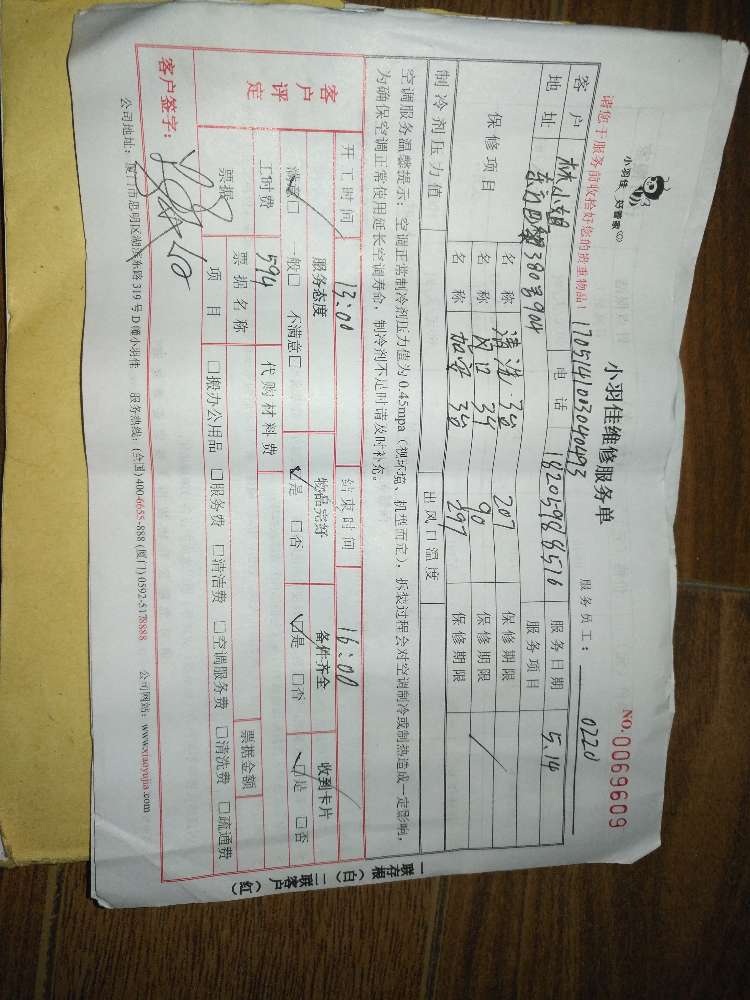 小羽佳维修服务单
NO.0069609
请您于服务前收拾好您的贵重物品!
1705141003040493
服务员工: 0220
客户 林小姐 电话 18205988576 服务日期 5.14
地址 380号904 服务项目
保修项目 名称 清洗 3台 207 保修期限
名称 风口 3个 90 保修期限
名称 加氟 3台 297 保修期限
制冷剂压力值 出风口温度
空调服务温馨提示:空调正常制冷剂压力值为0.45mpa(视环境、机型而定),拆装过程会对空调制冷或制热造成一定影响,
为确保空调正常使用延长空调寿命,制冷剂不足时请及时补充。
开工时间 13:00 结束时间 16:00
客户评定 服务态度 物品完好 备件齐全 收到卡片
满意□ 一般□ 不满意□ □是 □否 □是 □否 □是 □否
工时费 594 代购材料费
票据 票据名称 票据金额
项目 □搬办公用品 □服务费 □清洁费 □空调服务费 □清洗费 □疏通费
客户签字:
公司地址:厦门市思明区湖滨东路319号D幢小羽佳 服务热线:(全国)400-6655-888 (厦门)0592-5178888 公司网站:www.xiaoyujia.com
一联存根(白) 二联客户(红)